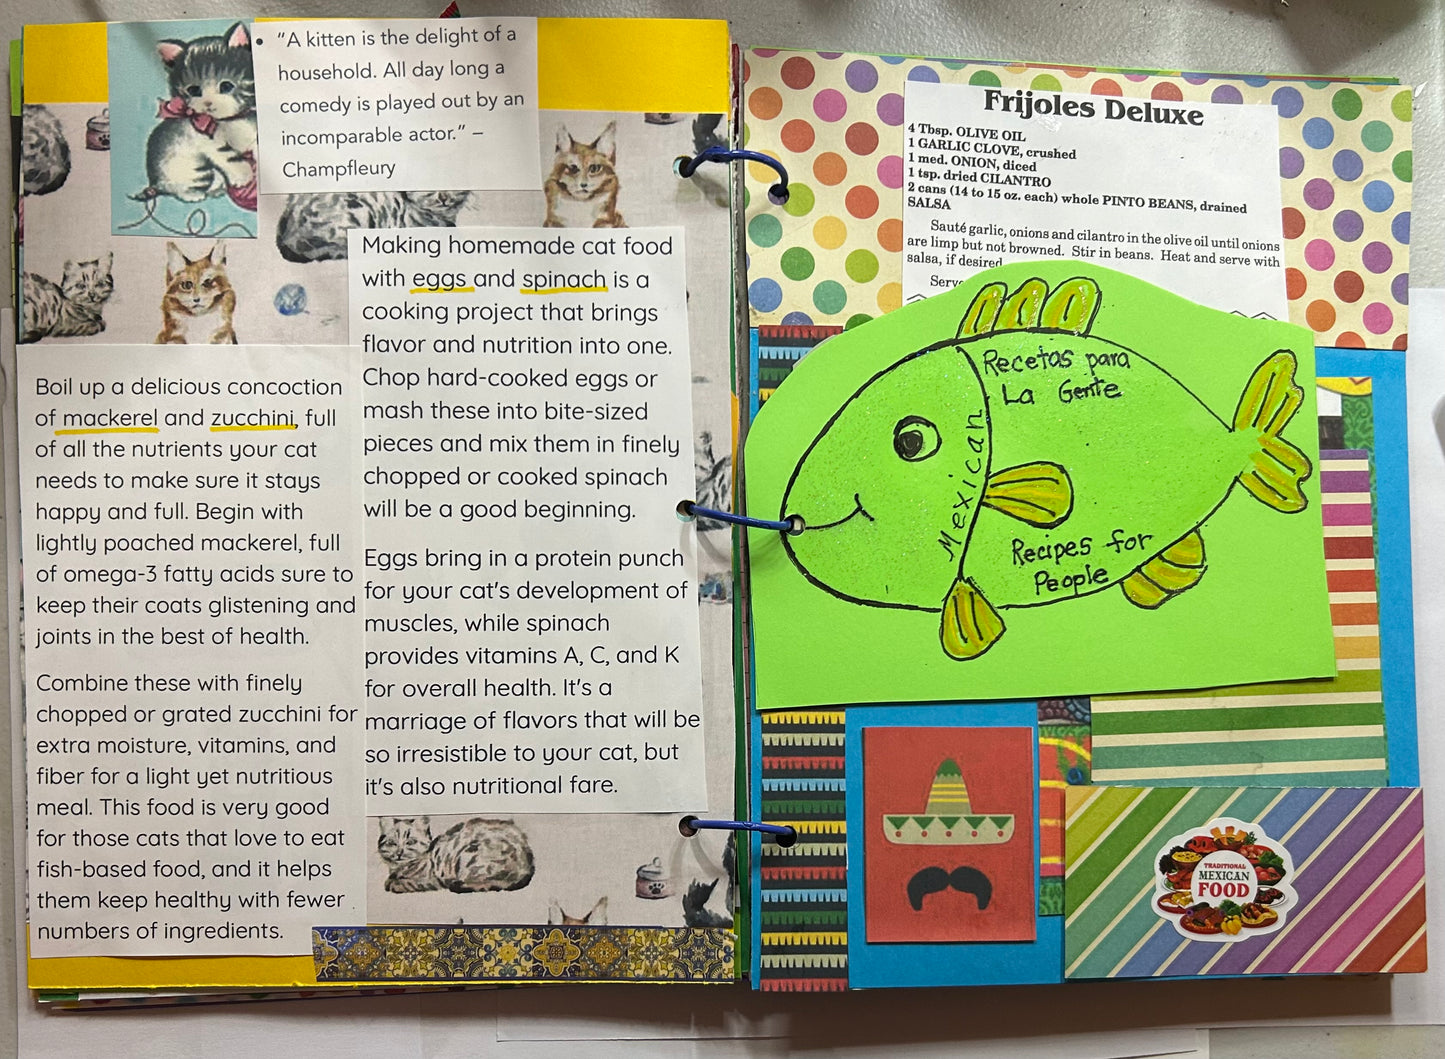 • “A kitten is the delight of a
household. All day long a
comedy is played out by an
incomparable actor.” –
Champfleury
Making homemade cat food
with eggs and spinach is a
cooking project that brings
flavor and nutrition into one.
Chop hard-cooked eggs or
mash these into bite-sized
pieces and mix them in finely
chopped or cooked spinach
will be a good beginning.
Eggs bring in a protein punch
for your cat's development of
muscles, while spinach
provides vitamins A, C, and K
for overall health. It's a
marriage of flavors that will be
so irresistible to your cat, but
it's also nutritional fare.
Boil up a delicious concoction
of mackerel and zucchini, full
of all the nutrients your cat
needs to make sure it stays
happy and full. Begin with
lightly poached mackerel, full
of omega-3 fatty acids sure to
keep their coats glistening and
joints in the best of health.
Combine these with finely
chopped or grated zucchini for
extra moisture, vitamins, and
fiber for a light yet nutritious
meal. This food is very good
for those cats that love to eat
fish-based food, and it helps
them keep healthy with fewer
numbers of ingredients.
Frijoles Deluxe
4 Tbsp. OLIVE OIL
1 GARLIC CLOVE, crushed
1 med. ONION, diced
1 tsp. dried CILANTRO
2 cans (14 to 15 oz. each) whole PINTO BEANS, drained
SALSA
Sauté garlic, onions and cilantro in the olive oil until onions
are limp but not browned. Stir in beans. Heat and serve with
salsa, if desired
Recetas para
La Gente
Mexican
Recipes for
People
TRADITIONAL
MEXICAN
FOOD